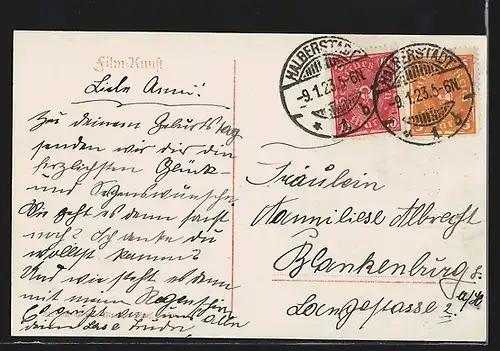 Film-Kunst
Liebe Anni!
Zu deinem Geburtstag
senden wir dir die
herzlichsten Glück-
und Segenswünsche
Wie geht es denn sonst
noch? Ich denke du
wolltest kommen?
Und wie steht es denn
mit meinem
Es grüßt von uns allen
deine Base
HALBERSTADT
-9.1.23.5-6N.
* 1 b
HALBERSTADT
-9.1.23.5-6N.
* 1 b
Fräulein
Hanniliese Albrecht
Blankenburg
a/H
Langestrasse 2.